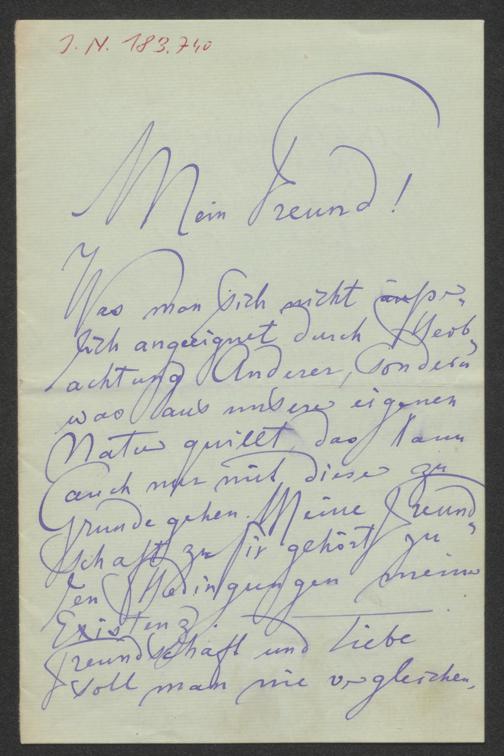 I. N. 183.740
Mein Freund!
Was man sich nicht äusser-
lich angeeignet durch Beob-
achtung Anderer, sondern
was aus unserer eigenen
Natur quillt, das kann
auch nur mit dieser zu
Grunde gehen. Meine Freund-
schaft zu Dir gehört zu
den Bedingungen meiner
Existenz.
Freundschaft und Liebe
soll man nie vergleichen,